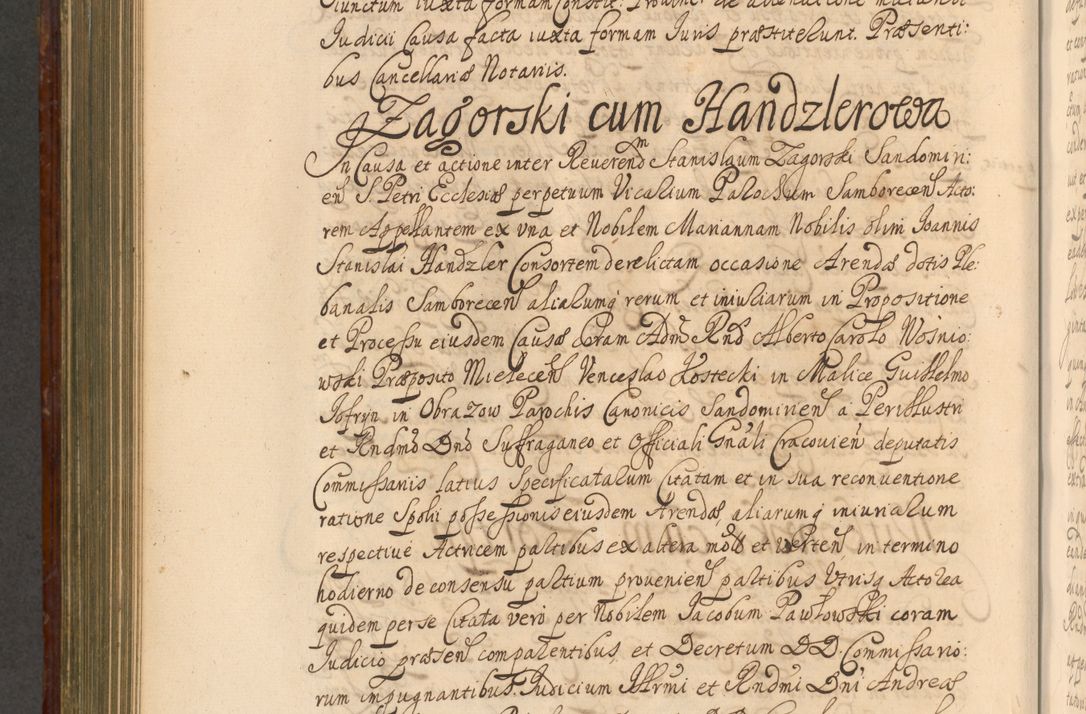 Iudicii Causa facta iuxta formam Iuris præstiterunt. Præsenti:
bus Cancellariæ Notariis.
Zagorski cum Handzlerowa
In Causa et actione inter Reverendm Stanislaum Zagorski Sandomiri:
en S. Petri Ecclesiæ perpetuum Vicarium Parochum Samborecen Acto:
rem Appellantem ex una et Nobilem Mariannam Nobilis olim Ioannis
Stanislai Handzler Consortem derelictam occasione Arendæ dotis Ple:
banalis Samborecen aliarumq rerum et iniuriarum in Propositione
et Processu eiusdem Causæ coram Adm Rnd Alberto Carolo Wosnio:
wski Præposito Mielecen Venceslao Kostecki in Malice Guilhelmo
Iofryn in Obrazow Parochis Canonicis Sandomirien a Perillustri
et Rndmo Dno Suffraganeo et Officiali Gnali Cracovien deputatis
Commissariis latius specificatarum Citatam et in sua reconventione
ratione Spolii possessionis eiusdem Arendæ, aliarumq iniuriarum
respective Actricem partibus ex altera et verten in termino
hodierno de consensu partium provenien partibus utrisq Actorea
quidem per se Citata vero per Nobilem Jacobum Pawłowski coram
Iudicio præsen comparentibus, et Decretum DD. Commissario:
rum impugnantibus. Iudicium Illrmi et Rndmi Dni Andreæ